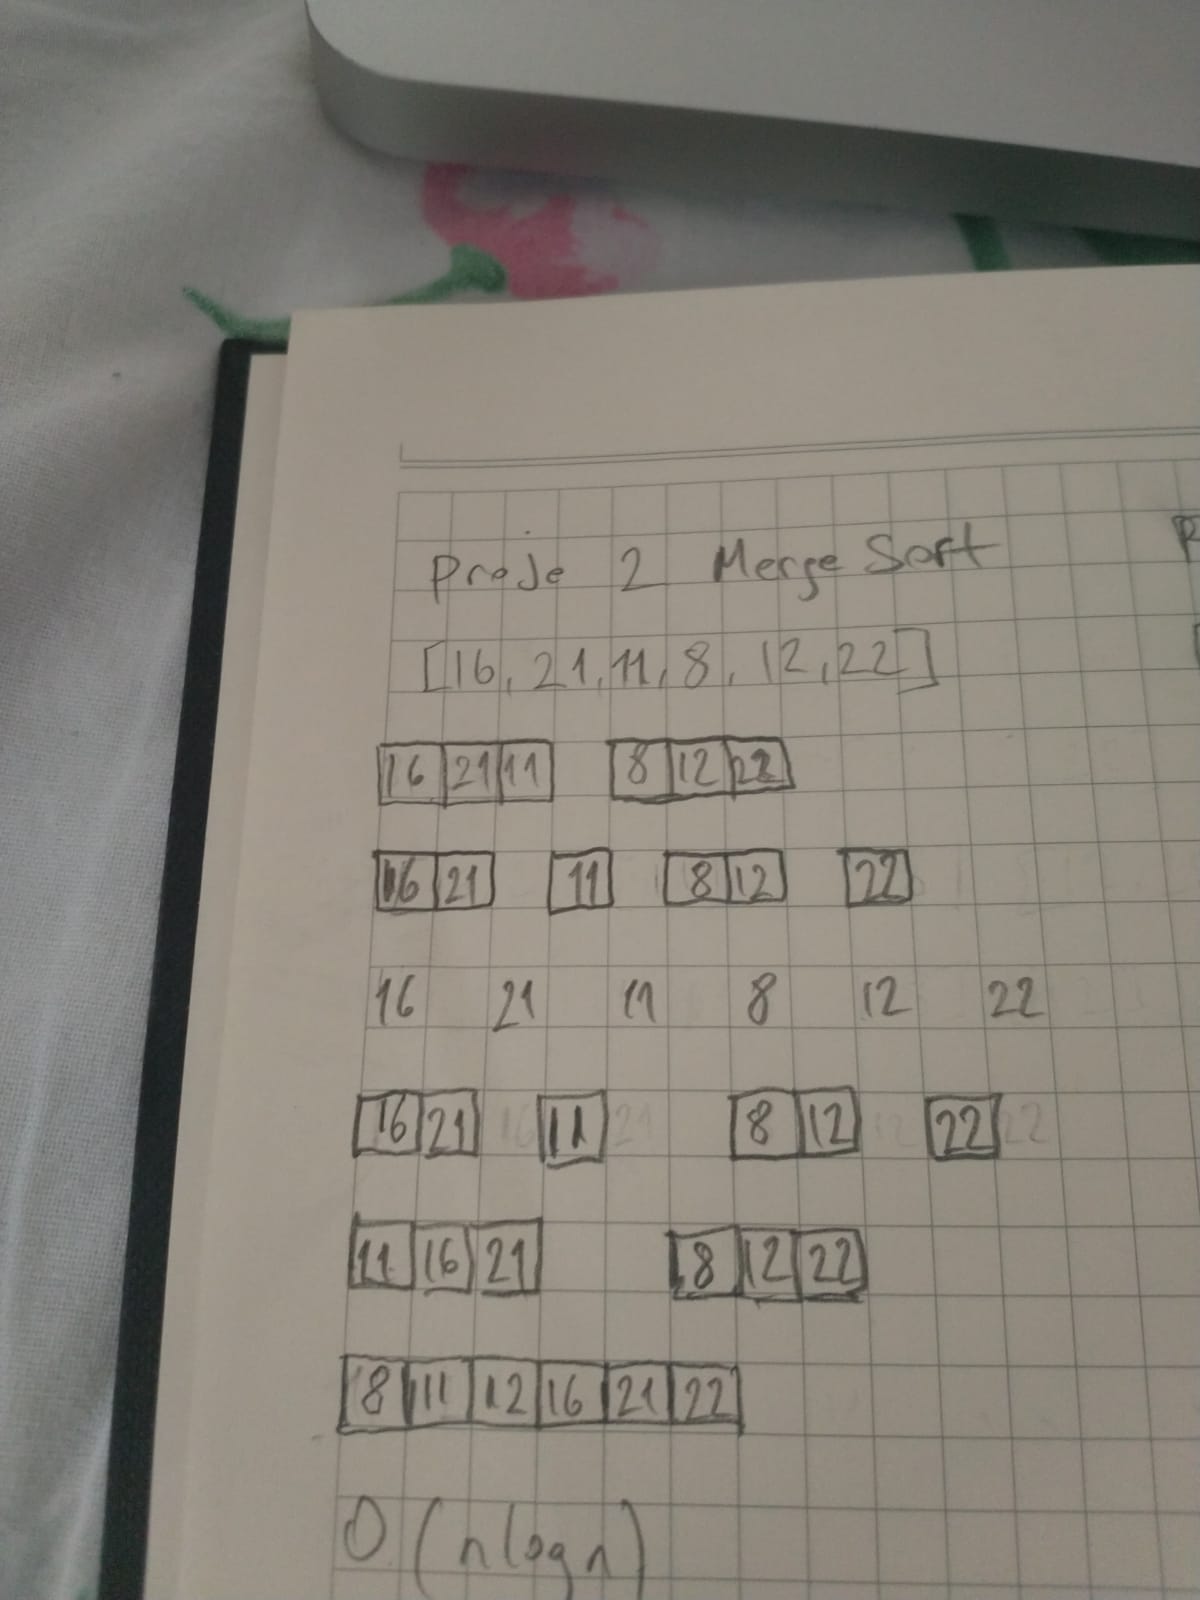 Proje 2 Merge Sort
[16, 21, 11, 8, 12, 22]
16 21 11 8 12 22
16 21 11 8 12 22
16 21 11 8 12 22
16 21 11 8 12 22
11 16 21 8 12 22
8 11 12 16 21 22
O(nlogn)